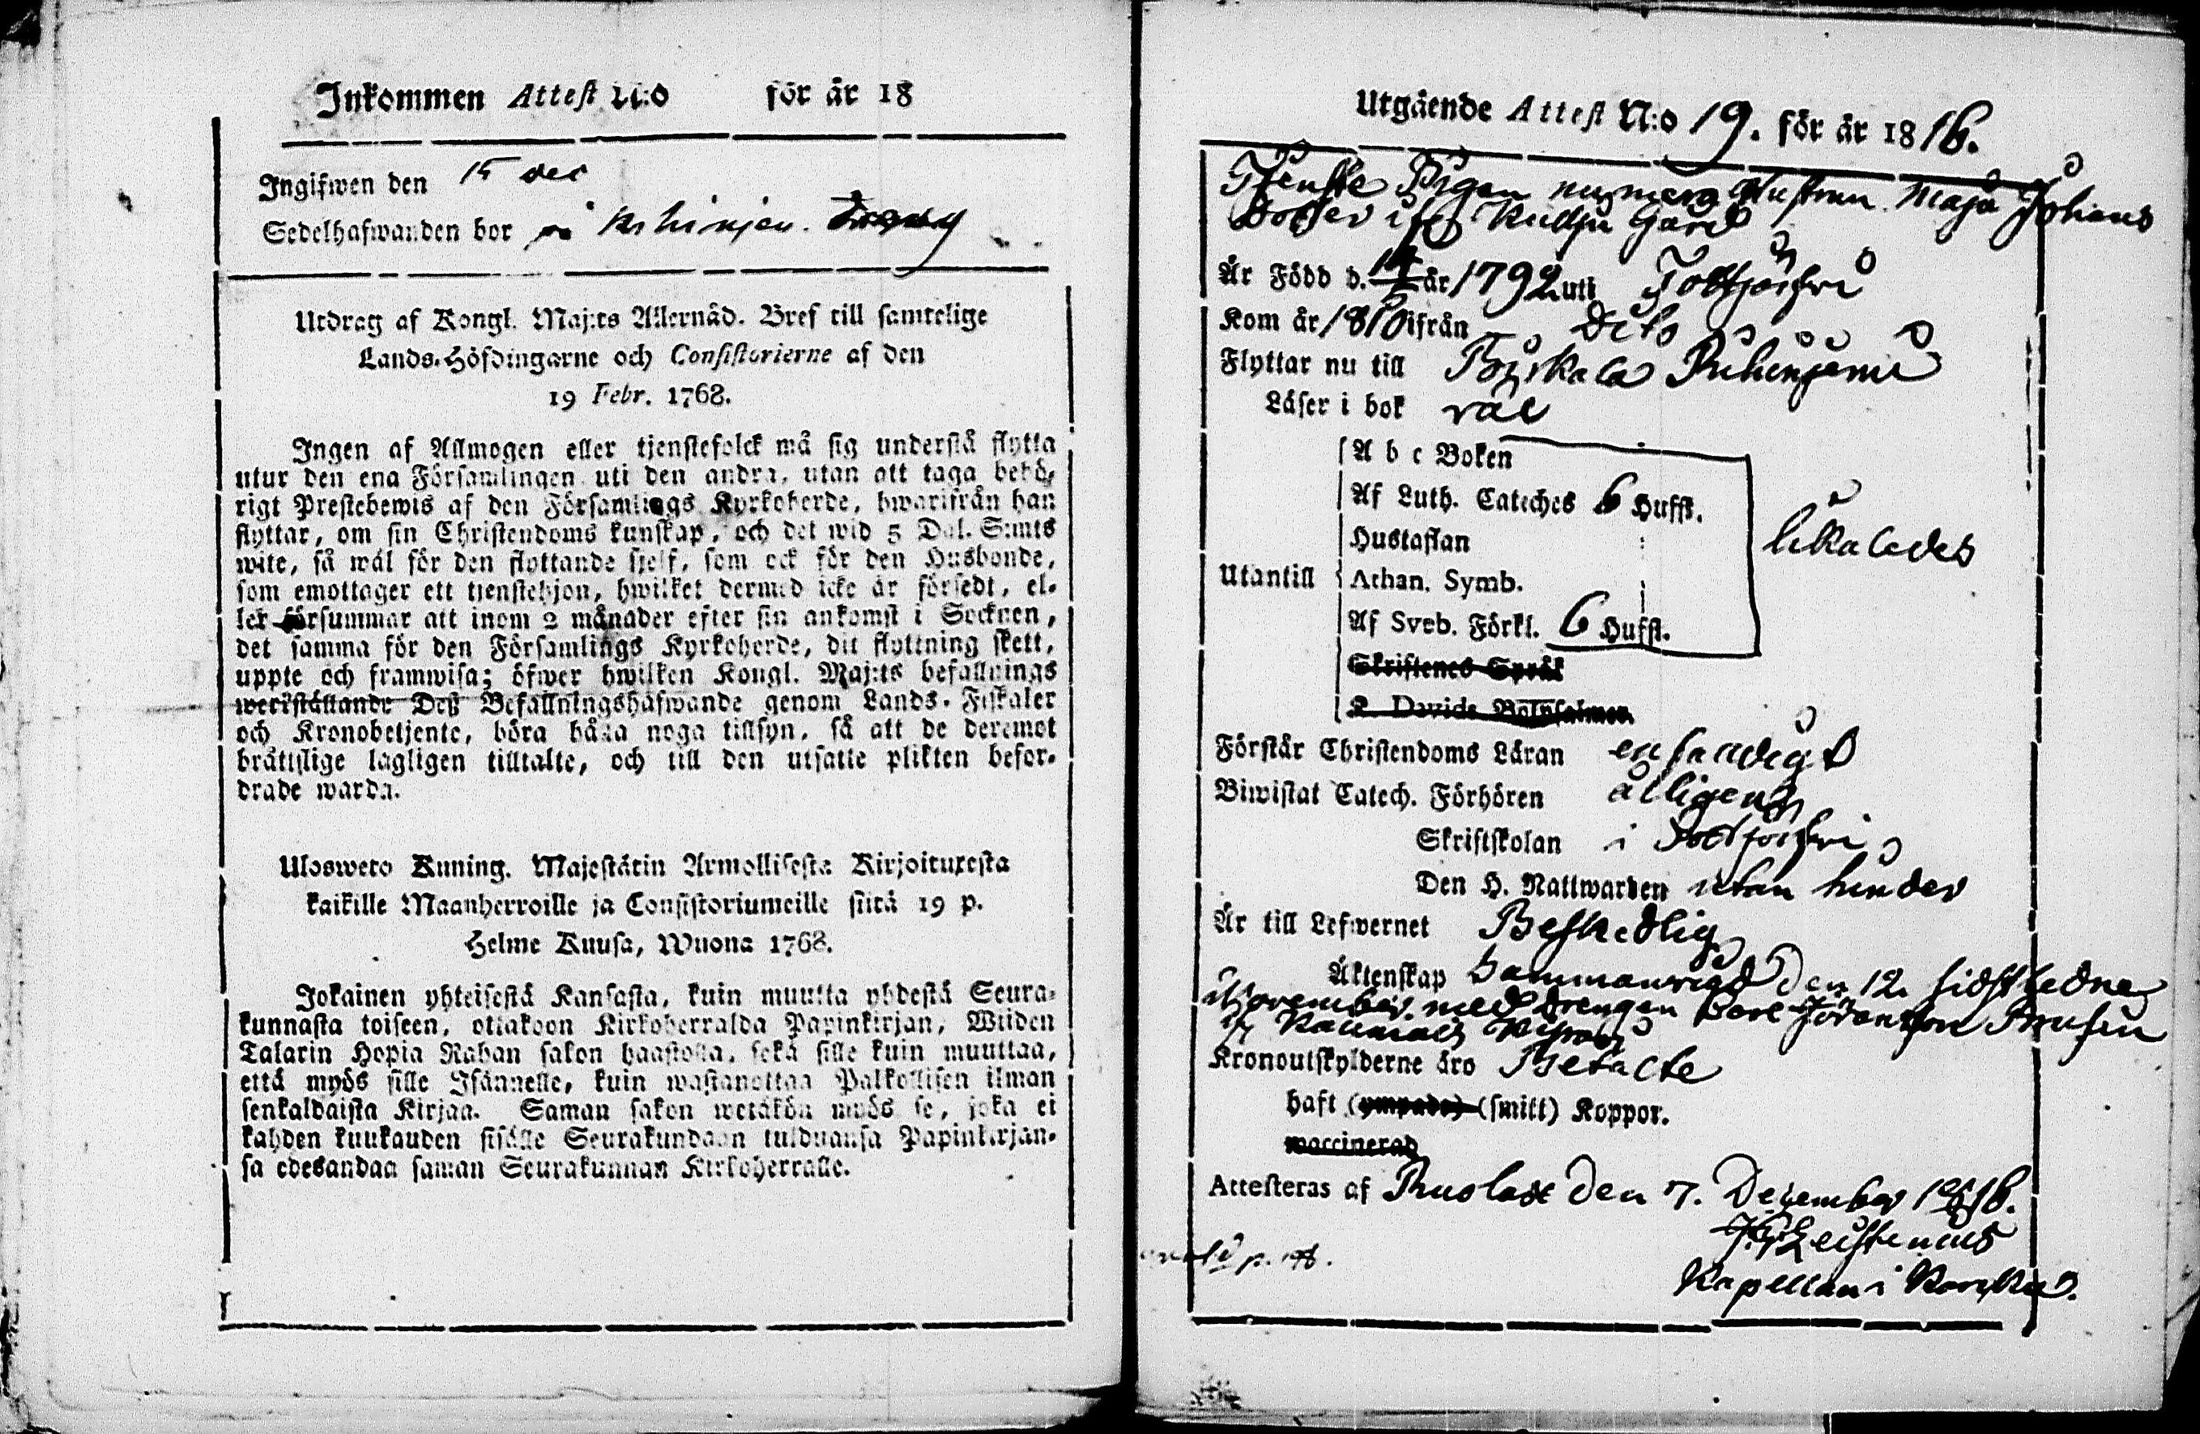 Inkommen Attest N:o för år 18
Ingifwen den 15 dec
Sedelhafwanden bor
Utdrag af Kongl. Maj:ts Allernåd. Bref till samtelige
Lands-Höfdingarne och Consistorierne af den
19 Febr. 1768.
Ingen af Allmogen eller tjenstefolck må sig understå flytta
utur den ena Församlingen uti den andra, utan att taga behö-
rigt Prestebewis af den Församlings Kyrkoherde, hwarifrån han
flyttar, om sin Christendoms kunskap, och det wid 5 Dal. S:mts
wite, så wäl för den flyttande sjelf, som ock för den Husbonde,
som emottager ett tjenstehjon, hwilket dermed icke är försedt, el-
ler försummar att inom 2 månader efter sin ankomst i Socknen,
det samma för den Församlings Kyrkoherde, dit flyttning skett,
uppte och framwisa; öfwer hwilken Kongl. Maj:ts befallnings
werkställande Deß Befallningshafwande genom Lands-Fiskaler
och Kronobetjente, böra hålla noga tillsyn, så att de deremot
bråttslige lagligen tilltalte, och till den utsatte plikten befor-
drade warda.
Ulosweto Kuning. Majestätin Armollisesta Kirjoituxesta
kaikille Maanherroille ja Consistoriumeille siitä 19 p.
Helme Kuusa, Wuona 1768.
Jokainen yhteisestä Kansasta, kuin muutta yhdestä Seura-
kunnasta toiseen, ottakoon Kirkoherralda Papinkirjan, Wiiden
Talarin Hopia Rahan sakon haastolla, sekä sille kuin muuttaa,
että myös sille Isännelle, kuin wastanottaa Palkollisen ilman
senkaldaista Kirjaa. Saman sakon wetäkön myös se, joka ei
kahden kuukauden sisälle Seurakundaan tulduansa Papinkirjan-
sa edesandaa saman Seurakunnan Kirkoherralle.
Utgående Attest N:o 19. för år 1816.
Tjenste Pigan numera Hustrun Maja Johans
Dotter ifrån Gård
Är Född d. år 1792 uti
Kom år 1810 ifrån Dito
Flyttar nu till
Läser i bok väl
A b c Boken
Af Luth. Cateches 6 Hufst.
Hustaflan
likaledes
Utantill Athan. Symb.
Af Sveb. Förkl. 6 Hufst.
Skriftenes Språk
K. Davids Botpsalmer.
Förstår Christendoms Läran enfaldigt
Biwistat Catech. Förhören
Skriftskolan i
Den H. Nattwarden utan hinder
Är till Lefwernet Beskedlig
Äktenskap Sammanvigd Den 12 sidstledne
November med Drengen
Kronoutskylderne äro Betalte
haft (ympade) (smitt) Koppor.
waccinerad
Attesteras af den 7. December 1816.
Kapellan i